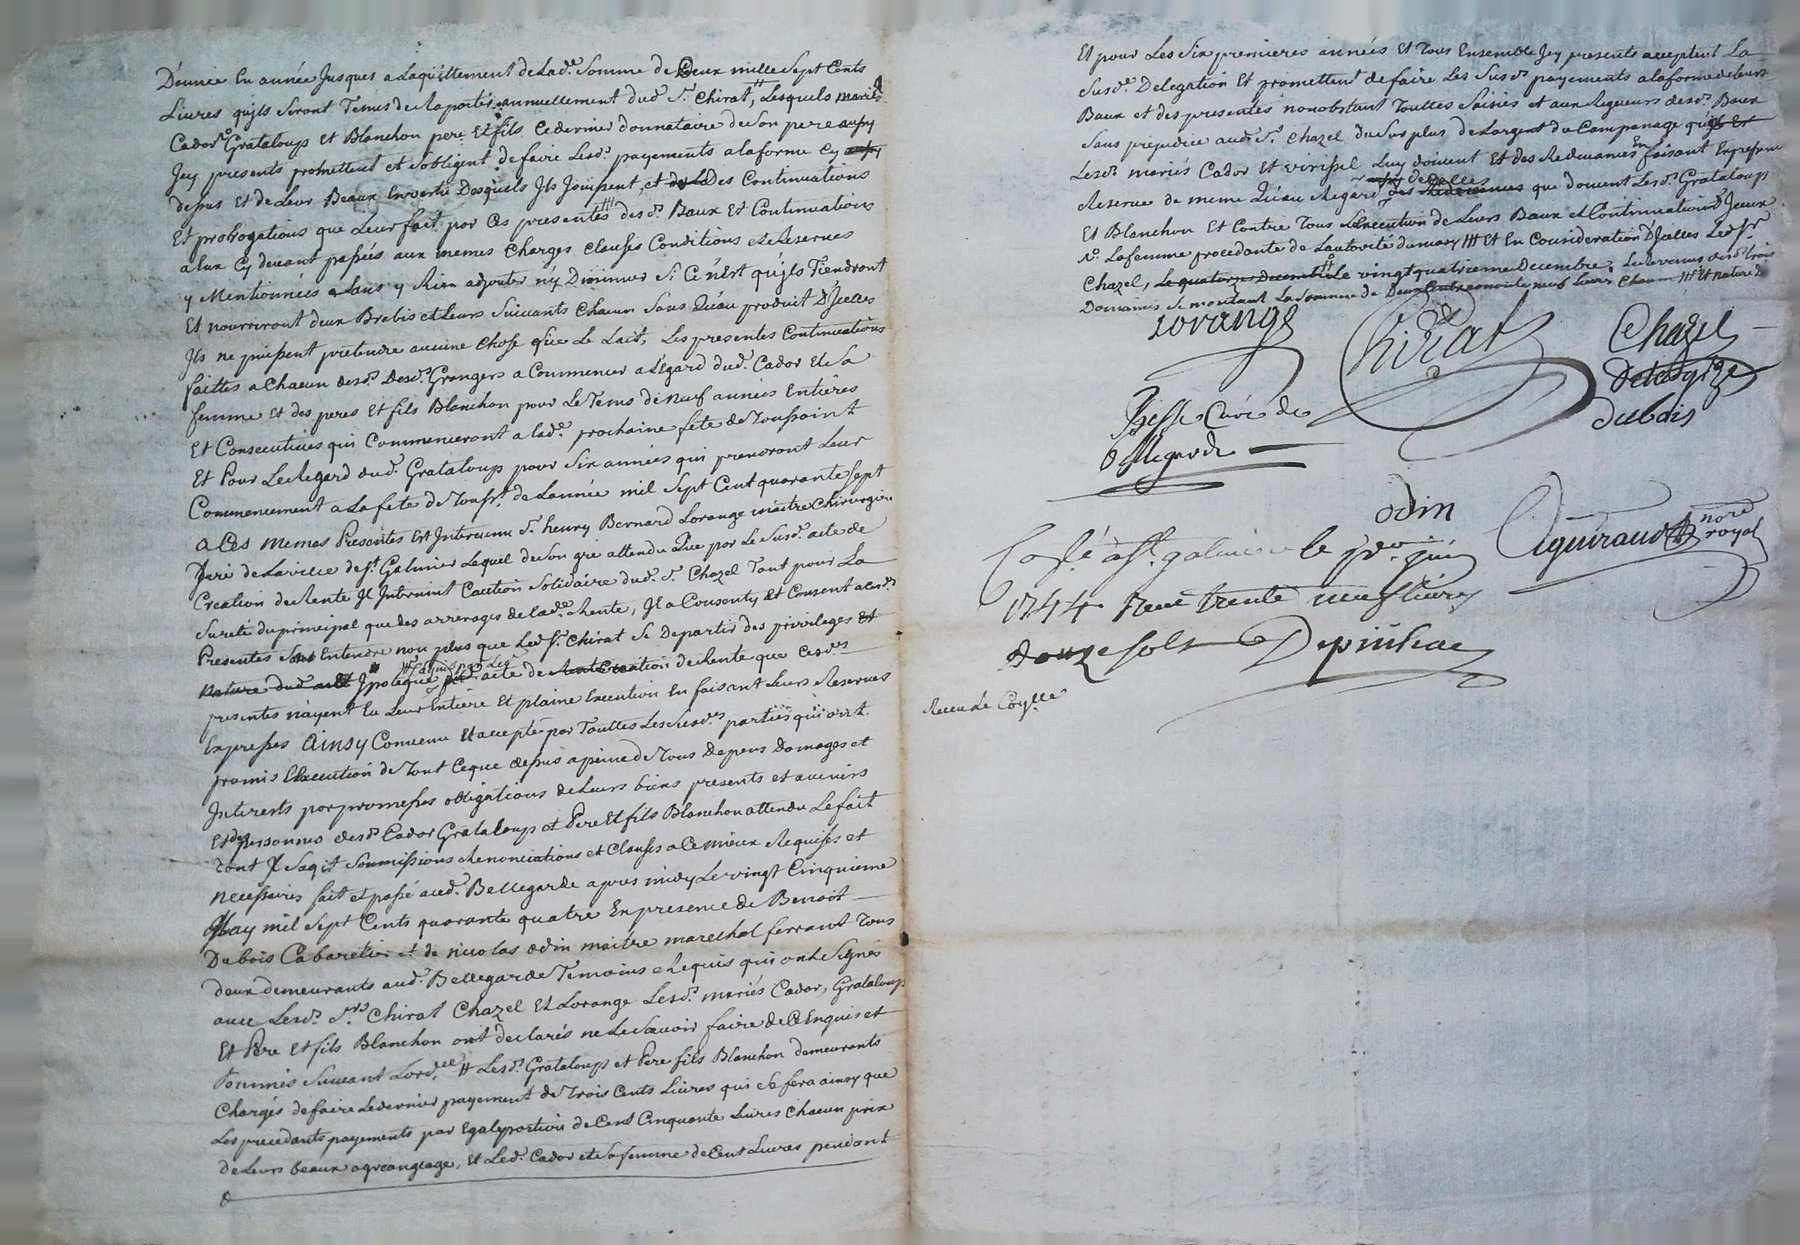 D'année En année Jusques a Laquittement de Lad.e Somme de Deux mille Sept Cents
Livres quils Seront Tenus de la porter annuellement dud. Sr. Chirat, Lesquels mariés
Cador Grataloup et Blanchon pere Et fils Ce dernier donnataire de Son pere
Jcy presents promettent et s'obligent de faire Lesd. payements a la forme Cy
depus et de Leur Beaux En vertu Desquels Jls Joüissent, et des Continuations
Et prorogations que Leur fait par Ces presentes des.d. Baux Et Continuations
a Eux Cy devant passées aux memes Charges Clauses Conditions et Reserves
y Mentionnées Sans y Rien adjouter n'y Diminuer Si Ce n'Est qu'jls Tiendront
Et nourriront deux Brebis et Leurs Suivants Chacun Sans Qu'au produit D'Jcelles
Jls ne puissent pretendre aucune Chose que Le Lait, Les presentes Continuations
faittes a Chacun desd. Grangers a Commencer a L'Egard dud. Cador Et Sa
femme Et des peres Et fils Blanchon pour Le Tems de Neuf années Entieres
Et Consecutives qui Commenceront a lad.e prochaine fete de Toussaint
Et Pour Le Regard dud. Grataloup pour Six années qui prendront Leur
Commencement a La fete de Tousst. de Lannée mil Sept Cent quarante Sept
a Ces memes Presentes Est Intervenu Sr. henry Bernard Lorange maitre Chirurgien
Juré de La ville de St. Galmier Lequel de Son gré attendu Que par Le Susd. acte de
Création de Rente Jl Intervint Caution Solidaire dud. Sr. Chazel Tant pour La
Sureté du principal que des arrerages de lad.e Rente, Jl a Consenty Et Consent a Cesd.
Presentes Sans Entendre non plus que Led. Sr. Chirat Se Departir des privileges Et
nature dud. acte Jpoteque acte de Creation de Rente que Cesd.es
presentes n'ayent Eu Leur Entiere Et plaine Execution En faisant Leurs Reserves
Expresses Ainsy Convenu Et accepté par Touttes Les Susd.es parties qui ont
promis L'Execution de Tout Ceque depus a peine de Tous Depens Domages et
Interests par promesses obligations de Leurs biens presents et avenirs
Et des Personnes desd. Cador Grataloup et Pere Et fils Blanchon attendu Le fait
Dont Jl Sagit Soumissions Renonciations et Clauses a Ce mieux Requises et
Necessaires fait et passé aud. Bellegarde apres midy Le vingt Cinquieme
May mil Sept Cents quarante quatre En presence de Benoit
Dubois Cabaretier et de nicolas odin maitre marechal ferrant Tous
deux demeurants aud. Bellegarde Temoins Requis qui ont Signés
avec Lesd. Srs. Chirat Chazel Et Lorange Lesd. mariés Cador, Grataloup
Et Pere Et fils Blanchon ont declarés ne Le Scavoir faire de Ce Enquis et
Sommés Suivant Lord.ce # Lesd. Grataloup et Pere fils Blanchon demeurants
Chargés de faire Le dernier payement de Trois Cents Livres qui Se fera ainsy que
Les precedants payements par Egale portion de Cent Cinquante Livres Chacun prix
de Leurs beaux a grangeage, et Led. Cador et Sa femme de Cent Livres pendant
Et pour Les Six premieres années Et Tous Ensemble Jcy presents acceptent La
Susd.e Delegation Et promettent de faire Les Susd. payements a la forme de Leurs
Baux et des presentes nonobstant Touttes Saisies et aux Rigueurs desd. Baux
Sans prejudice aud. Sr. Chazel du Surplus de Largent du Campanage
Lesd. mariés Cador Et Luy doivent Et des Redevances En faisant Expresse
Reserve de meme Qu'au Regard de Celles que doivent Lesd. Grataloup
Et Blanchon Et Contre Tous L'Execution de Leurs Baux et Continuations D'Jceux
La femme procedante de Lautorité du mary Et En Consideration D'Jcelles Led. Sr.
Chazel, Le quatorze Decembre Le vingt quatrieme Decembre. Le Revenu desd. trois
Domaines Se montant La Somme de
Lorange
Chirat
Chazel
Dubois
Curé de
Bellegarde
odin
Aguiraud nore royal
Collé a St. galmier le
1744 Reçu trente neuf livres
douze sols
Receu Le